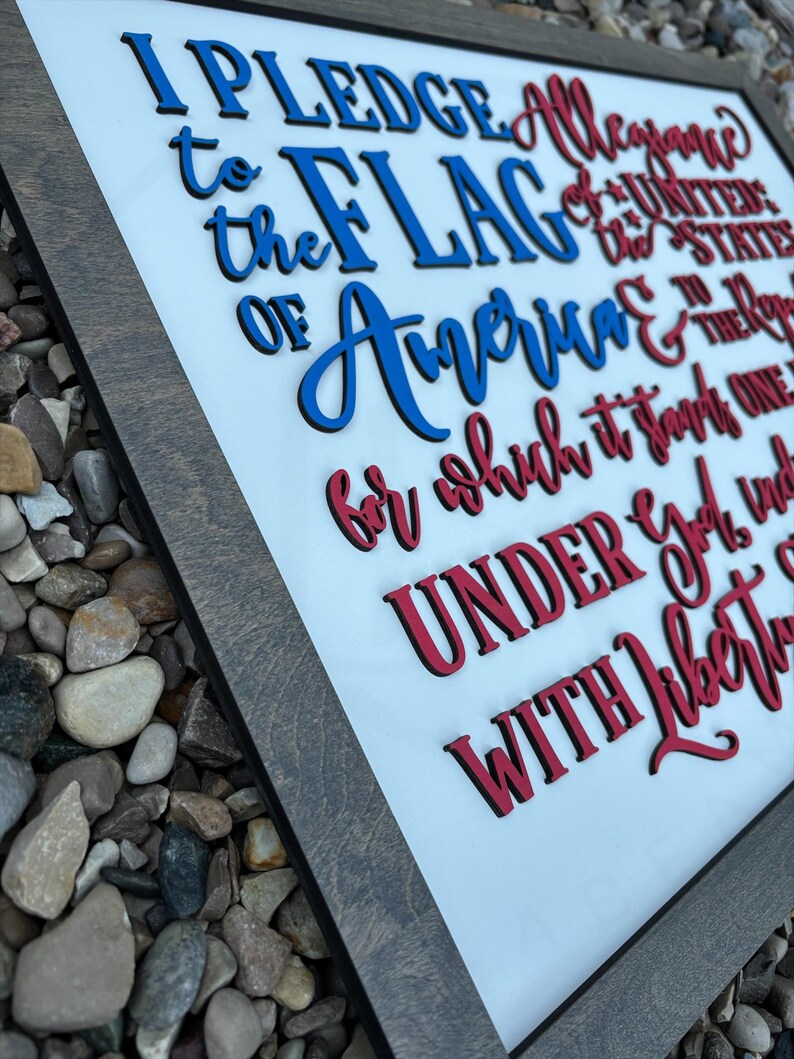 I PLEDGE Allegiance
to the FLAG of the UNITED STATES
OF America & TO THE
for which it stands ONE
UNDER God,
WITH Liberty